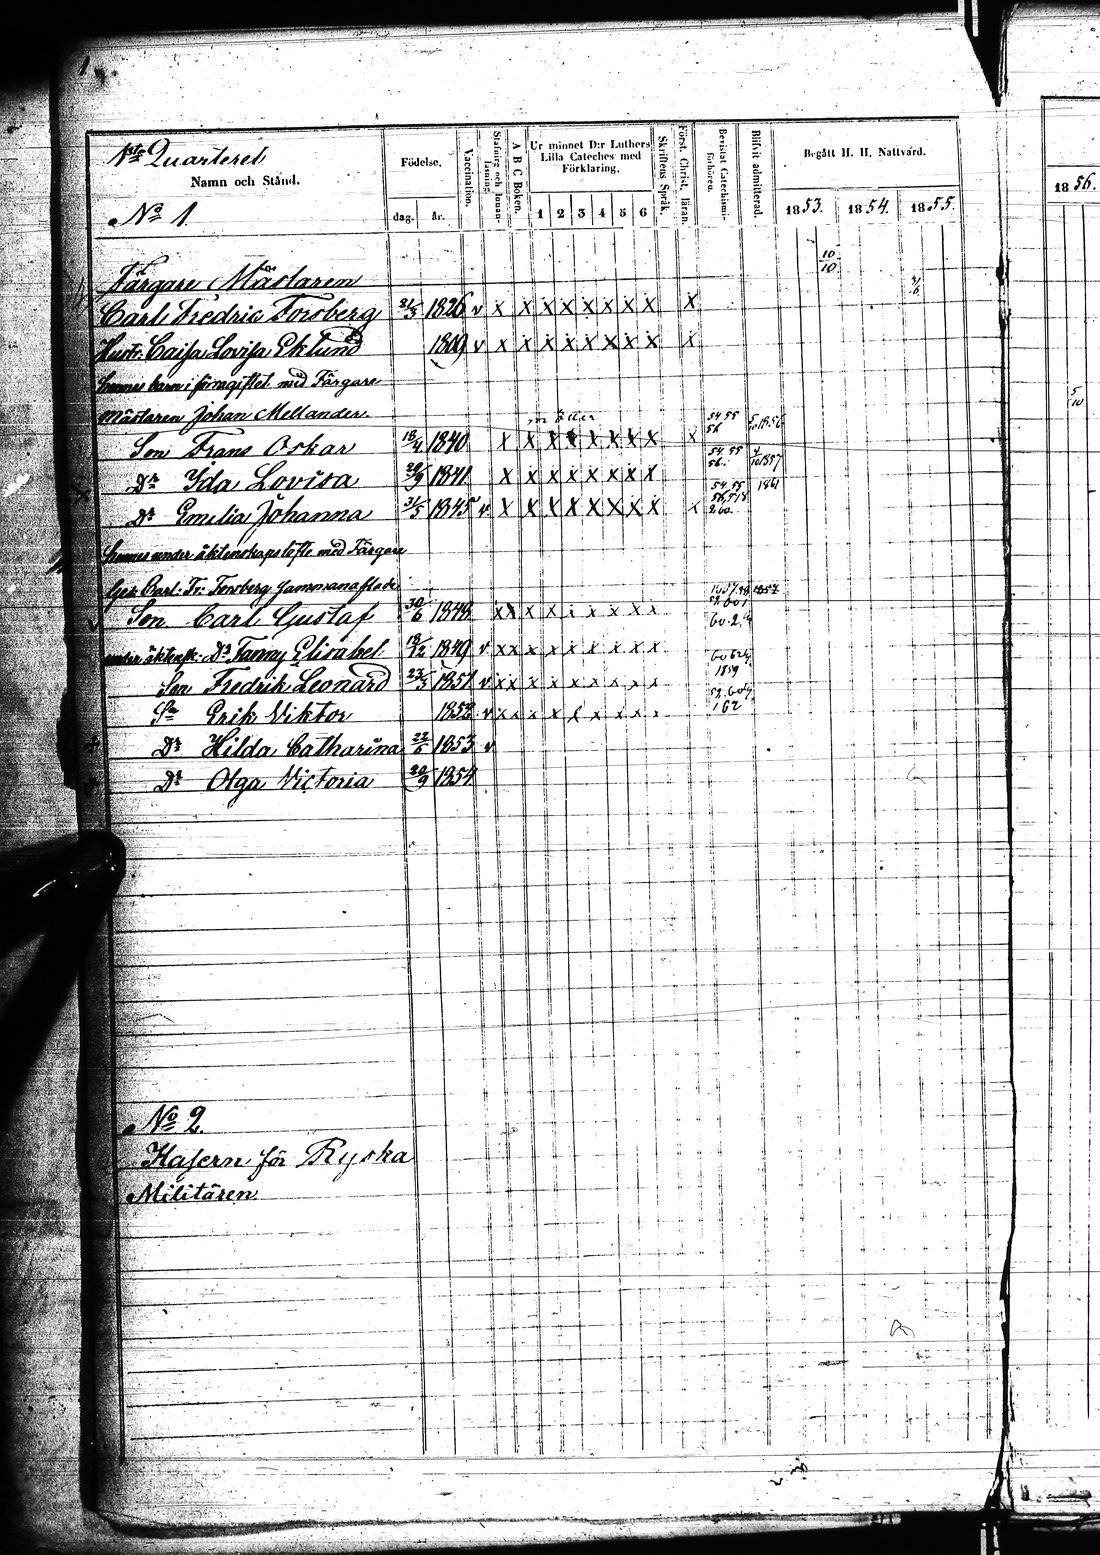 1
1sta Quarteret
Namn och Stånd.
No 1.
Födelse,
dag. år.
Vaccination.
Stafning och Innan-
läsning.
A B C Boken.
Ur minnet D:r Luthers
Lilla Cateches med
Förklaring.
1 2 3 4 5 6
Skriftens Språk.
Först. Christ. läran.
Bevistat Catechismi-
förhören.
Blifvit admitterad.
Begått H. H. Nattvard.
1853. 1854. 1855.
1856.
10/10
Färgare Mästaren
Carl Fredric Forsberg 21/3 1826 v x x x x x x x x x
Hustr. Caisa Lovisa Eklund 1809 v x x x x x x x x x
hennes barn i förra giftet med Färgare
Mästaren Johan Mellander 5/10
Son Frans Oskar 18/4 1840 x x x x x x x x x 54 55 56 1856
Dr Ida Lovisa 20/9 1841 x x x x x x x x 54. 55 56. 1857
Dr Emilia Johanna 31/5 1845 v x x x x x x x x x 54. 55 1861
hennes under äktenskapslöfte med Färgare
Carl. Fr: Forsberg
Son Carl Gustaf 30/6 1848 x x x x x x x x
under äktensk: Dr Fanny Elisabet 18/12 1849 v x x x x x x x x
Son Fredrik Leonard 23/3 1851 v x x x x x x x x 1859
Sn Erik Viktor 1852 v x x x x x x x x
Dr Hilda Catharina 23/5 1853 v
Dr Olga Victoria 20/9 1854
No 2.
Kasern för Ryska
Militären